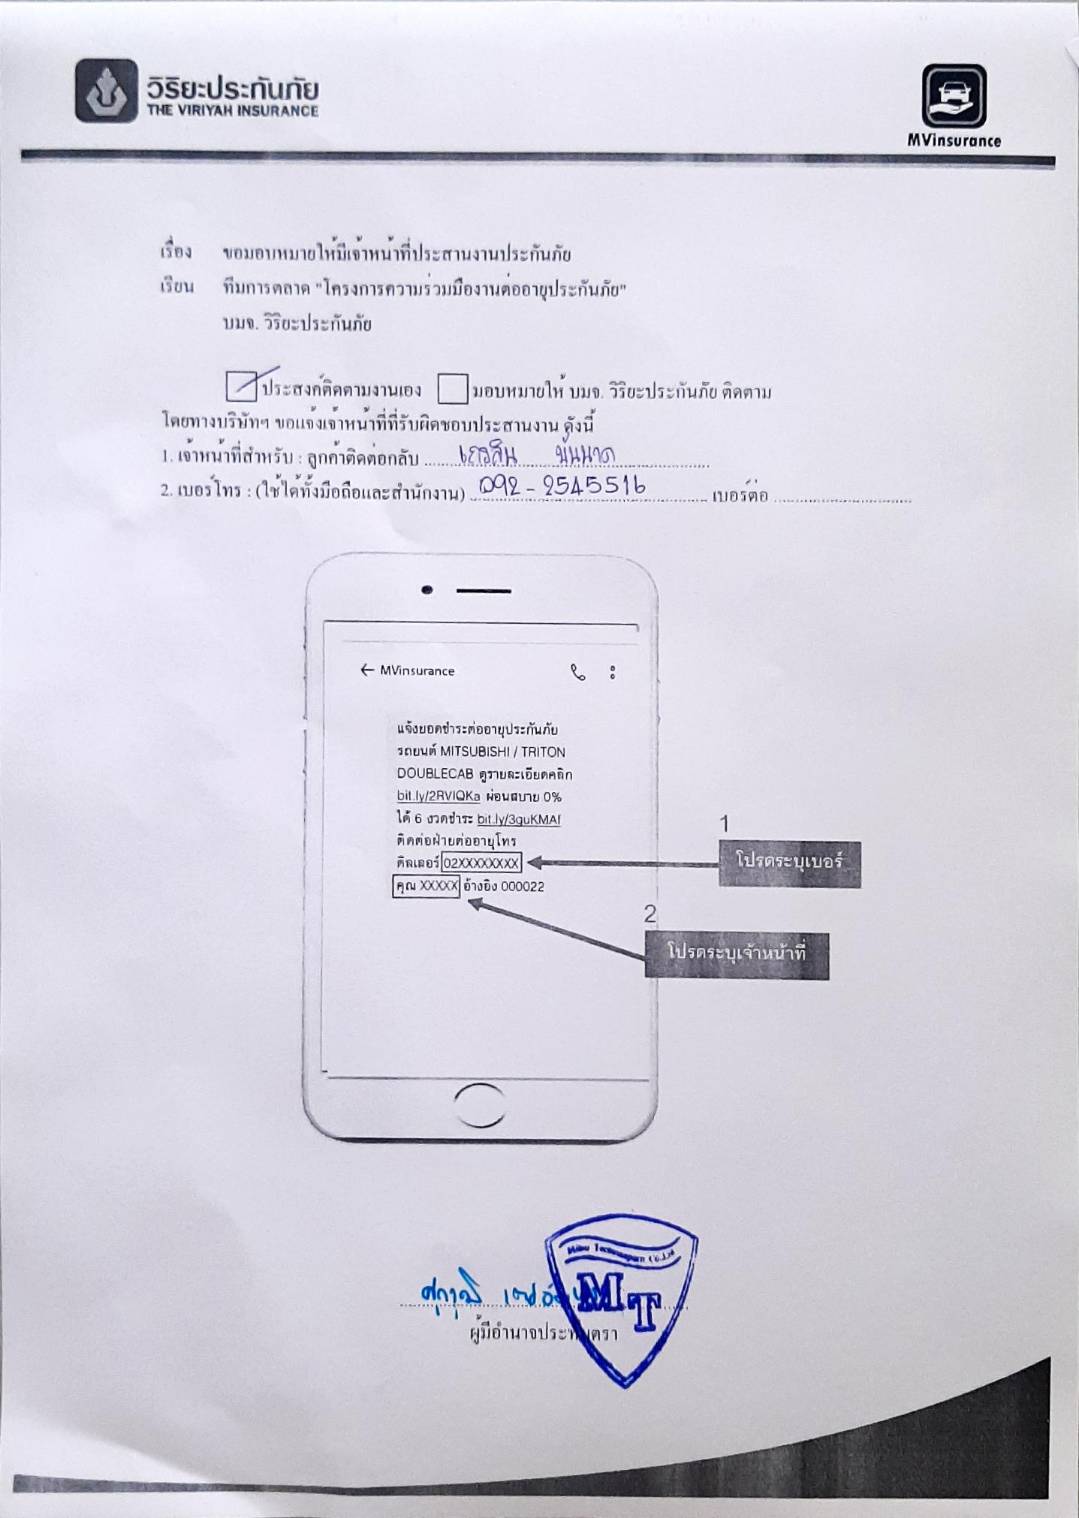 วิริยะประกันภัย
THE VIRIYAH INSURANCE
MVinsurance
เรื่อง ขอมอบหมายให้มีเจ้าหน้าที่ประสานงานประกันภัย
เรียน ทีมการตลาด "โครงการความร่วมมืองานต่ออายุประกันภัย"
บมจ. วิริยะประกันภัย
ประสงค์ติดตามงานเอง มอบหมายให้ บมจ. วิริยะประกันภัย ติดตาม
โดยทางบริษัทฯ ขอแจ้งเจ้าหน้าที่ที่รับผิดชอบประสานงาน ดังนี้
1. เจ้าหน้าที่สำหรับ : ลูกค้าติดต่อกลับ
2. เบอร์โทร : (ใช้ได้ทั้งมือถือและสำนักงาน) 092-2545516 เบอร์ต่อ
← MVinsurance
แจ้งยอดชำระต่ออายุประกันภัย
รถยนต์ MITSUBISHI / TRITON
DOUBLECAB ดูรายละเอียดคลิก
bit.ly/2RVIQKa ผ่อนสบาย 0%
ได้ 6 งวดชำระ bit.ly/3guKMAf
ติดต่อฝ่ายต่ออายุโทร
ดีลเลอร์ 02XXXXXXXX
คุณ XXXXX อ้างอิง 000022
1
โปรดระบุเบอร์
2
โปรดระบุเจ้าหน้าที่
Co.,Ltd
MT
ผู้มีอำนาจประทับตรา